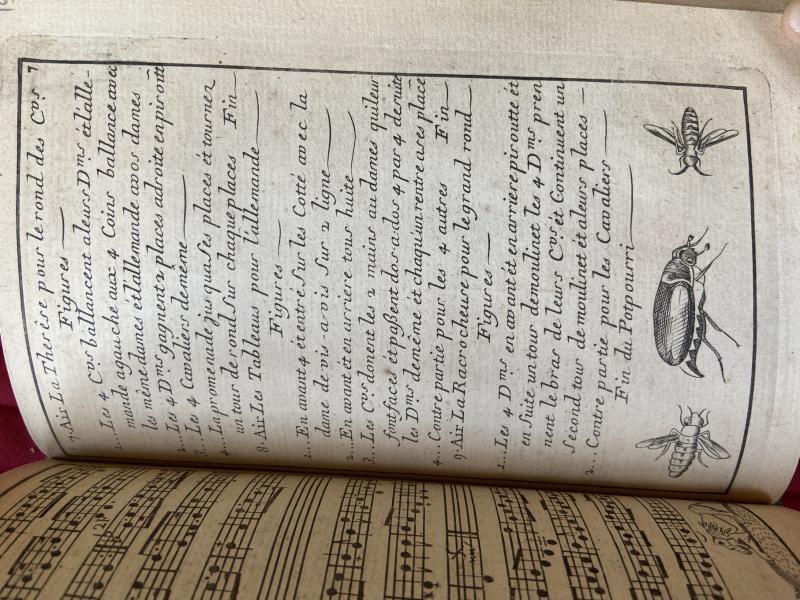 7
7. Air La Therése pour le rond des C.vrs
Figures
1... Les 4 C.vrs ballancent a leurs D.ms et lálle-
mande a gauche aux 4 Coins ballance avec
les même dames et lállemande avos dames
2... Les 4 D.ms gagnent 2 places adroite en piroüette
3... Les 4 Cavaliers demême
4... La promenade jusquáses places ét tournez
un tour de rond sur chaque places Fin
8. Air Les Tableaus pour lállemande
Figures
1... En avant 4 ét entré sur les Cotté avec la
dame de vis-a-vis sur 2 ligne
2... En avant ét en arriere tous huite
3... Les C.vrs donent les 2 mains au dames qui leur
font faces ét paßent dos-a-dos 4 par 4 de suite
les D.ms demême ét chaqu'un rentre a ses place
4... Contre partie pour les 4 autres Fin
9. Air La Racrocheure pour le grand rond
Figures
1... Les 4 D.ms en avant ét en arriere piroutte ét
en suite un tour de moulinet les 4 D.ms pren
nent le bras de leurs C.vrs ét Continuent un
second tour de moulinet ét a leurs places
2... Contre partie pour les Cavaliers
Fin du Potpourri